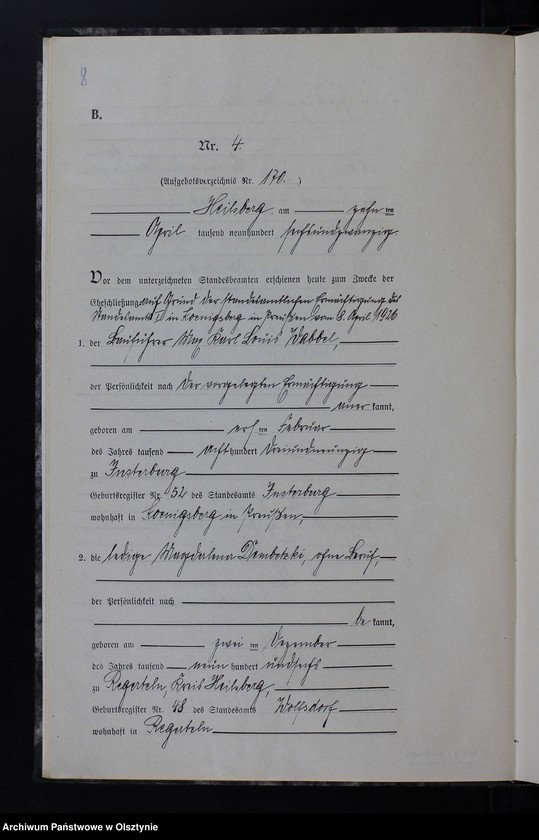 8
B.
Nr. 4.
(Aufgebotsverzeichnis Nr. 170. )
Heilsberg am zehnten
April tausend neunhundert sechsundzwanzig.
Vor dem unterzeichneten Standesbeamten erschienen heute zum Zwecke der
Eheschließung auf Grund der standesamtlichen Ermächtigung des
Standesamts I in Koenigsberg in Preußen vom 8. April 1926
1. der Bauführer Max Karl Louis Dabbel,
der Persönlichkeit nach der vorgelegten Ermächtigung
anerkannt,
geboren am ersten Februar
des Jahres tausend achthundert dreiundneunzig
zu Insterburg
Geburtsregister Nr. 52 des Standesamts Insterburg
wohnhaft in Koenigsberg in Preußen,
2. die ledige Magdalena Dembetzki, ohne Beruf,
der Persönlichkeit nach
bekannt,
geboren am zweiten Dezember
des Jahres tausend neunhundert undsechs
zu Regerteln, Kreis Heilsberg,
Geburtsregister Nr. 48 des Standesamts Wolfsdorf
wohnhaft in Regerteln
Archiwum Państwowe w Olsztynie